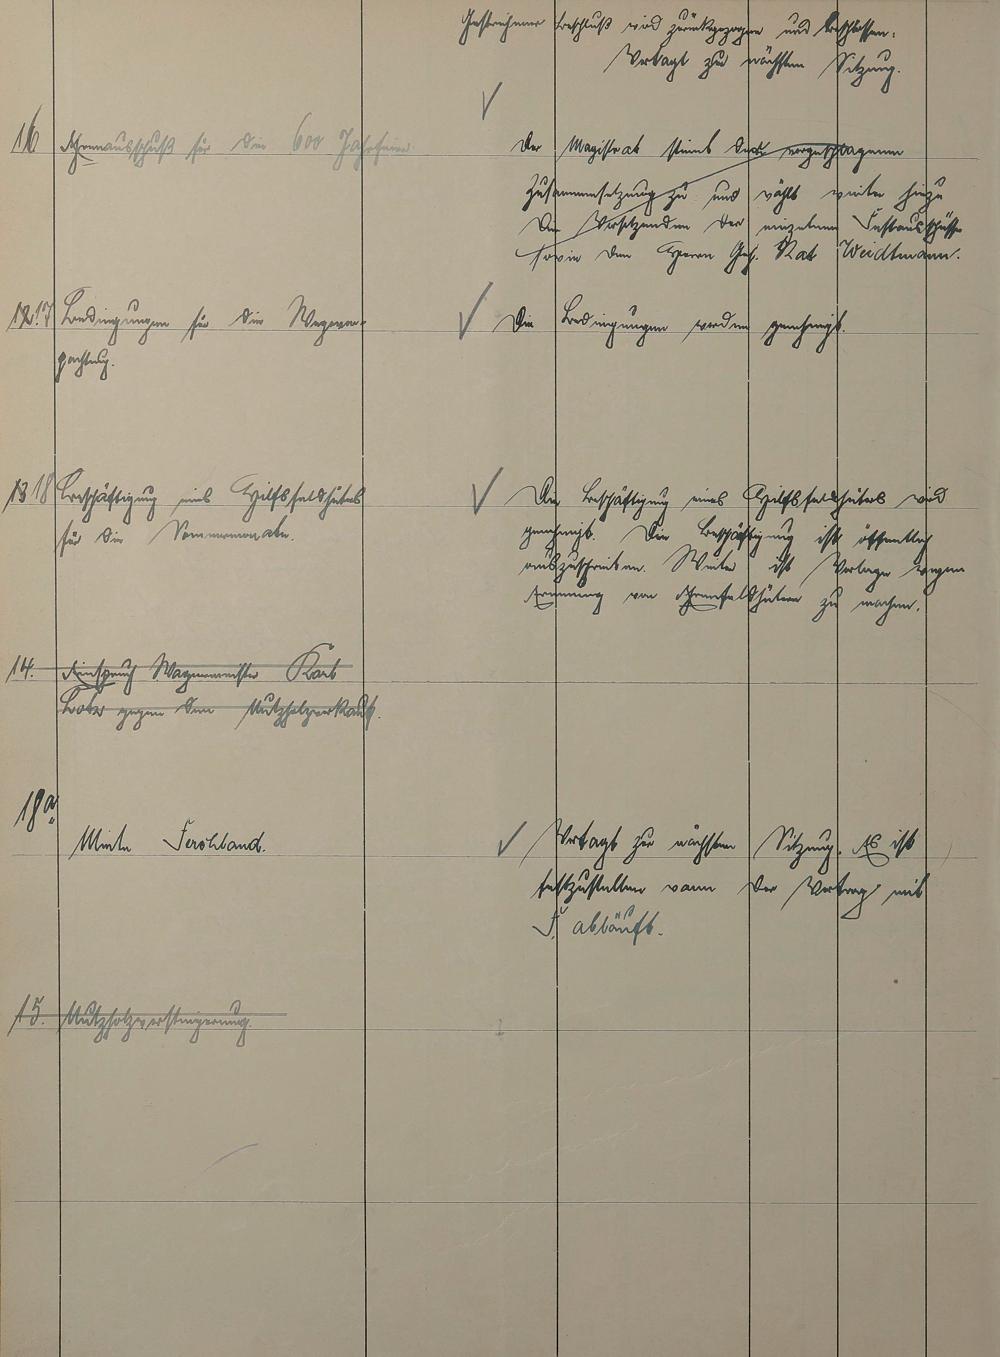 Gestrichener Beschluß wird zurückgezogen und beschlossen:
Vertagt zur nächsten Sitzung.
16 Ehrenausschuß für die 600 Jahrfeier.
Der Magistrat stimmt der vorgeschlagenen
Zusammensetzung zu und wählt weiter hinzu
Die Vorsitzenden der einzelnen Festausschüsse
sowie den Herrn Geh. Rat Weidtmann.
17 Bedingungen für die Wegever-
pachtung.
Die Bedingungen werden genehmigt.
18 Beschäftigung eines Hilfsfeldhüters
für die Sommermonate.
Die Beschäftigung eines Hilfsfeldhüters wird
genehmigt. Die Beschäftigung ist öffentlich
auszuschreiben. Weiter ist Vorlage wegen
Ernennung von Ehrenfeldhütern zu machen.
14. Einspruch Wagnermeister Karl
gegen den Nutzholzverkauf.
18a
Miete Ferchland.
Vertagt zur nächsten Sitzung. Es ist
festzustellen wann der Vertrag mit
F. abläuft.
15. Nutzholzversteigerung.